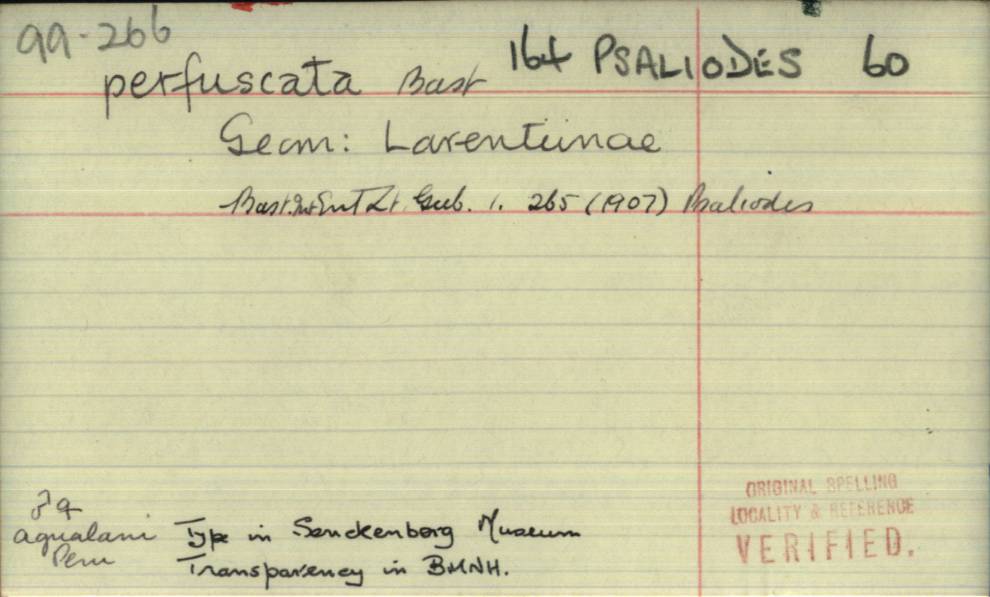 99-266
perfuscata Bast 164 PSALIODES 60
Geom: Larentiinae
Bast. Int Ent Zt. Gub. 1. 265 (1907) Psaliodes
♂ ♀
aqualani
Peru
Type in Senckenberg Museum
Transparency in BMNH.
ORIGINAL SPELLING
LOCALITY & REFERENCE
VERIFIED.